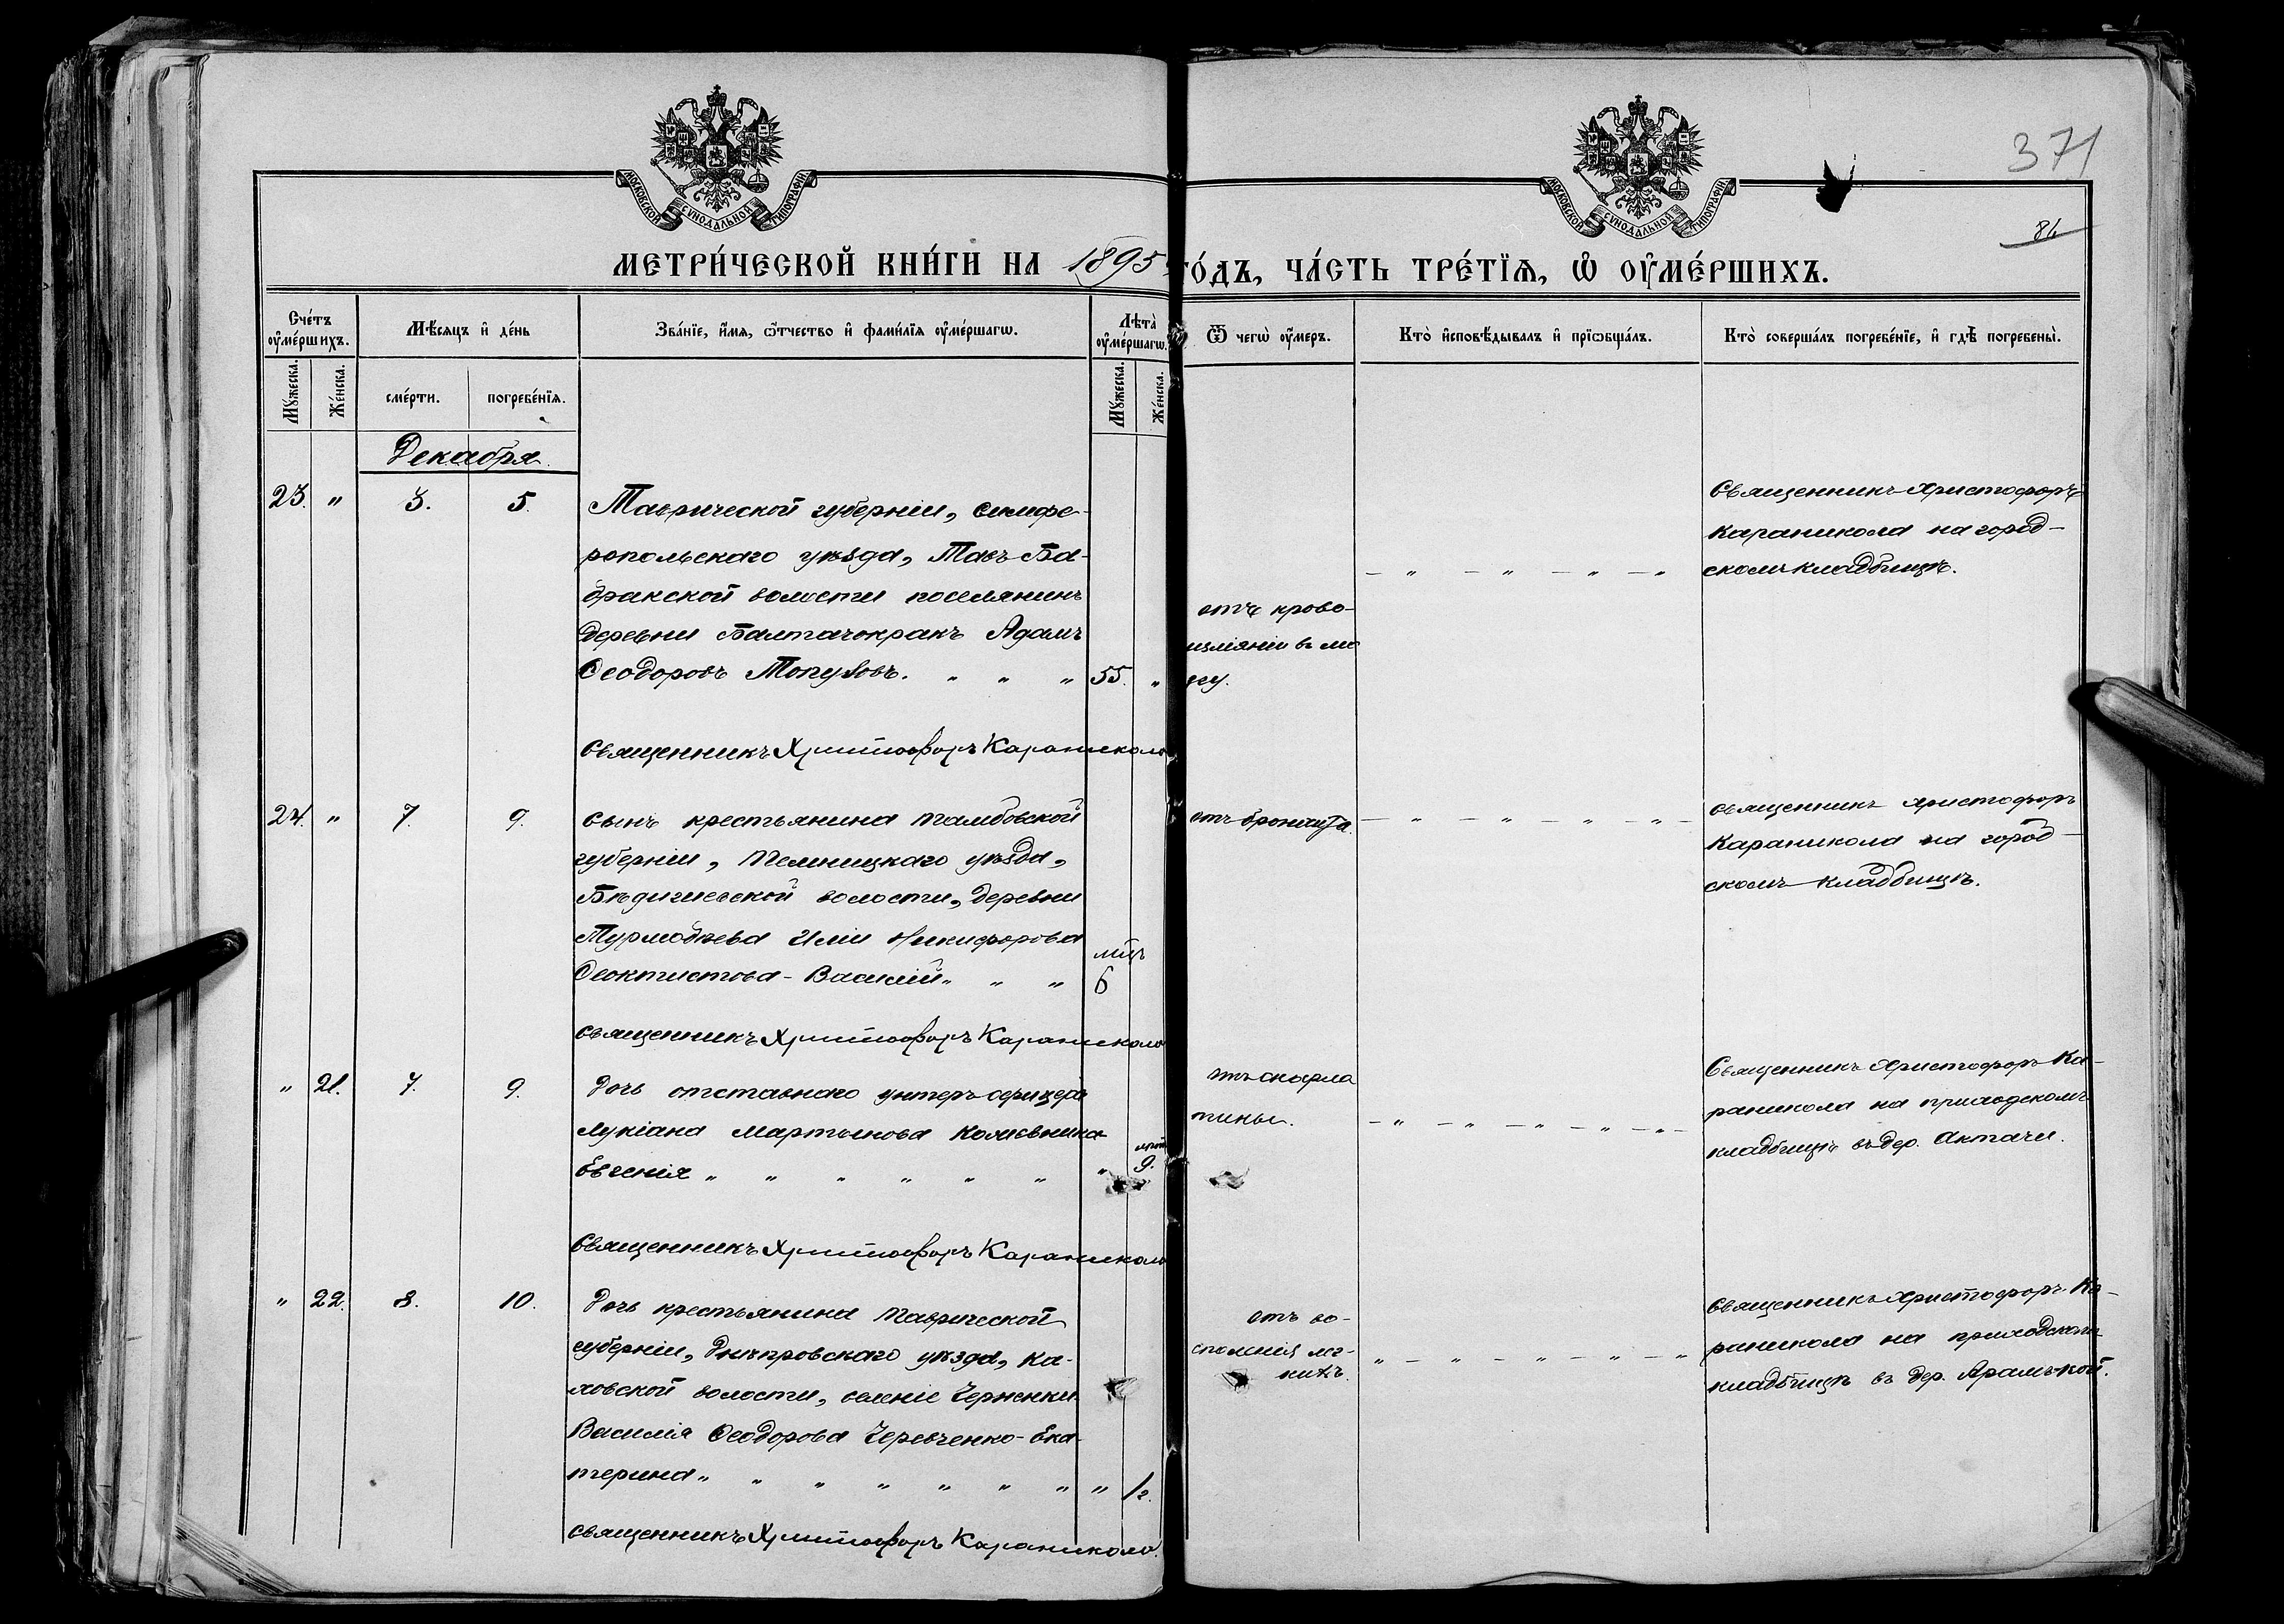 МОСКОВСКОЙ СѴНОДАЛЬНОЙ ТИПОГРАФІИ
МОСКОВСКОЙ СѴНОДАЛЬНОЙ ТИПОГРАФІИ
371
86
МЕТРИ́ЧЕСКОЙ КНИ́ГИ НА 1895 ГО́ДЪ, ЧА́СТЬ ТРЕ́ТЇѦ, Ѡ҆ ОУ҆МЕ́РШИХЪ.
Сче́тъ оу҆ме́ршихъ.
Мѣ́сяцъ и҆ де́нь
Зва́нїе, и҆́мя, ѻ҆́тчество и҆ фами́лїя оу҆ме́ршагѡ.
Лѣта̀ оу҆ме́ршагѡ.
Ѿ чегѡ̀ оу҆́меръ.
Кто̀ и҆сповѣ́дывалъ и҆ прїѡбща́лъ.
Кто̀ соверша́лъ погребе́нїе, и҆ гдѣ̀ погребены̀.
Мꙋ́жеска. Же́нска.
сме́рти. погребе́нїя.
Мꙋ́жеска. Же́нска.
Декабря
23. " 3. 5.
Таврической губерніи, Симфе-
ропольскаго уѣзда, Тавъ-Ба-
дракской волости поселянинъ
деревни Балтачокракъ Адамъ
Ѳеодоровъ Топузовъ. " " " 55. "
отъ крово-
изліяніи въ моз
гу.
— " — " — " — "
Священникъ Христофоръ
Караникола на город-
скомъ кладбищѣ.
Священникъ Христофоръ Караникола
24. " 7. 9.
Сынъ крестьянина Тамбовской
губерніи, Темницкаго уѣзда,
волости, деревни
Турмодѣева Иліи Никифорова
Ѳеоктистова - Василій " " "
мѣц
6
отъ бронхита.
— " — " — " — " —
Священникъ Христофоръ
Караникола на город-
скомъ кладбищѣ.
Священникъ Христофоръ Караникола
" 21. 7. 9.
Дочь отставнаго унтеръ-офицера
Лукіана Мартынова Колѣвника
Евгенія " " " " " " " 9.
отъ скарла
тины.
— " — " — " — " — " —
Священникъ Христофоръ Ка-
раникола на приходскомъ
кладбищѣ въ дер. Актачи.
Священникъ Христофоръ Караникола
" 22. 8. 10.
Дочь крестьянина Таврической
губерніи, Днѣпровскаго уѣзда, Ка-
ховской волости, селеніе Черненьки
Василія Ѳеодорова Черевченко - Ека
терина " " " " " " " " 1/2.
отъ во-
спаленія лег-
кихъ.
" — " — " — " — "
Священникъ Христофоръ Ка-
раникола на приходскомъ
кладбищѣ въ дер. Арамъ-кой.
Священникъ Христофоръ Караникола.